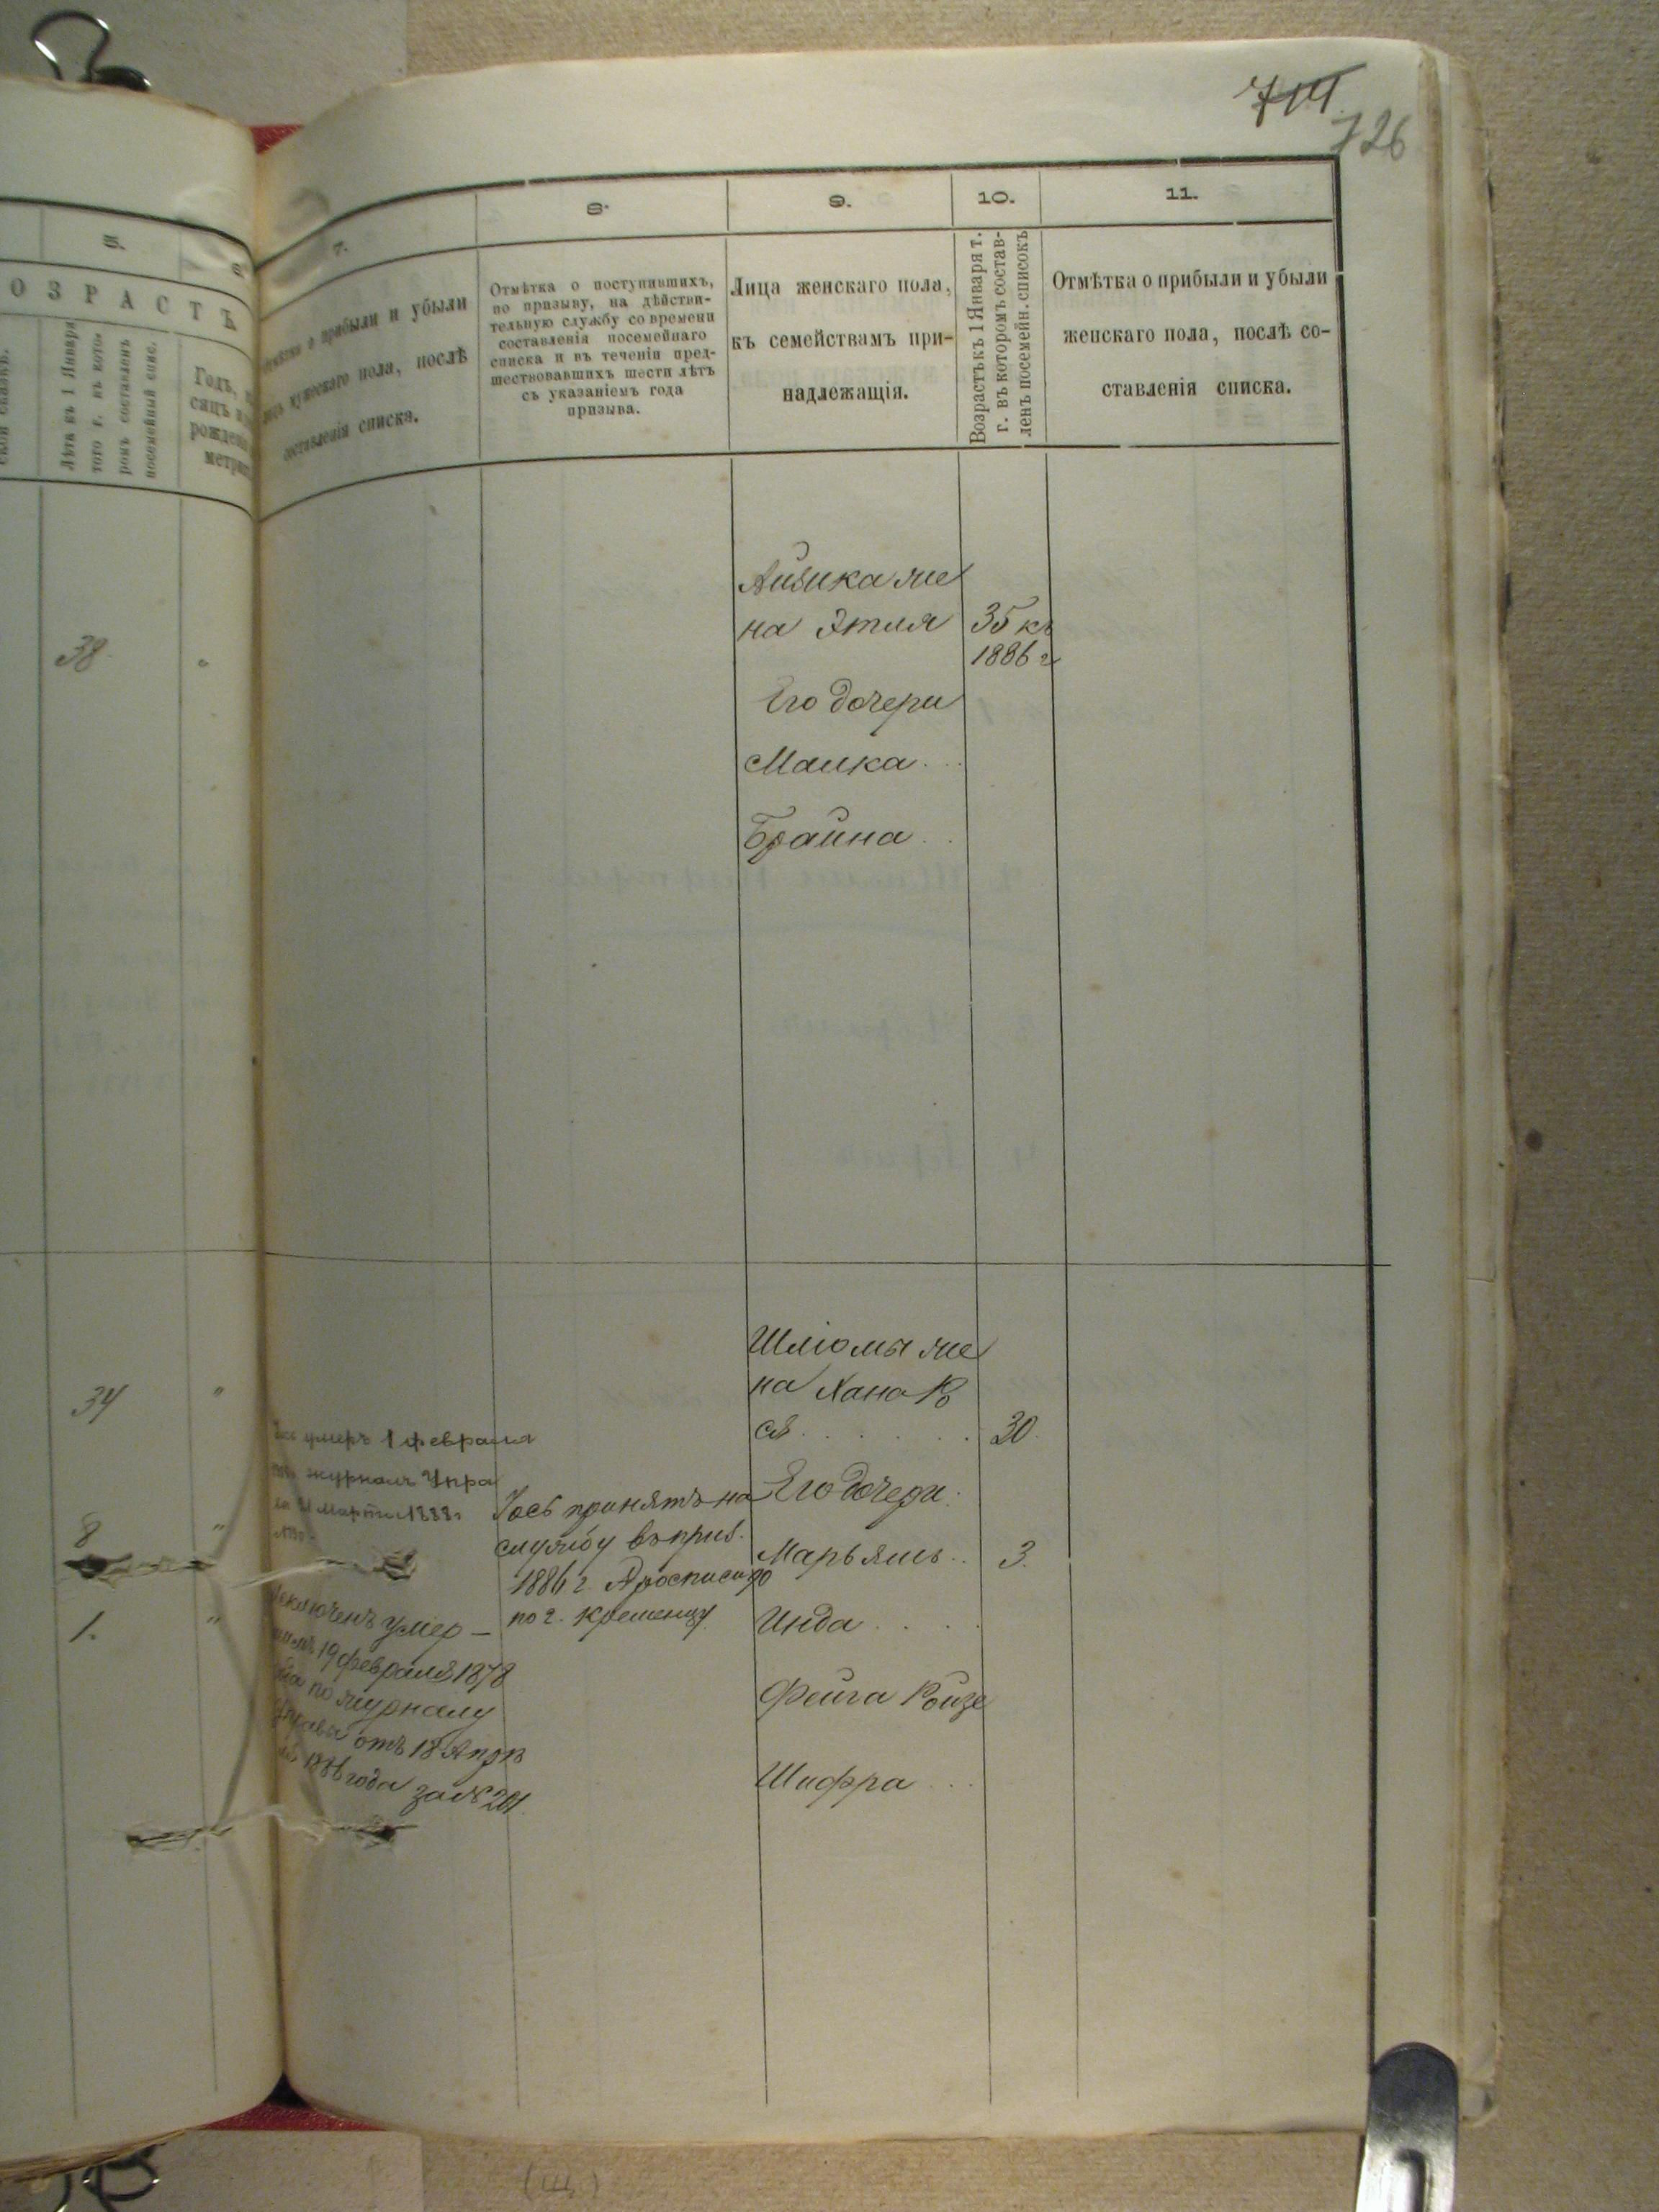 714
726
5.
6.
7.
8.
9.
10.
11.
ОЗРАСТЪ
Лѣта къ 1 Января
того г. въ кото-
ромъ составленъ
посемейный спис.
Годъ,
рожден
метри
о прибыли и убыли
мужескаго пола, послѣ
составленія списка.
Отмѣтка о поступившихъ,
по призыву, на дѣйстви-
тельную службу со времени
составленія посемейнаго
списка и въ теченіи пред-
шествовавшихъ шести лѣтъ
съ указаніемъ года
призыва.
Лица женскаго пола,
къ семействамъ при-
надлежащія.
Возрастъ къ 1 Января т.
г. въ которомъ состав-
ленъ посемейн. списокъ
Отмѣтка о прибыли и убыли
женскаго пола, послѣ со-
ставленія списка.
38
Айзика же
на Этля 35 къ
1886 г
Его дочери
Малка
Брайна
34 "
Шліомы же
на Хана Ро
ся 30.
умеръ 1 февраля
журналъ Упра
Марта 1888 г
8 "
Іось принятъ на
службу въ приз.
1886 г.
по г. Кременцу
Его дочери
Марьямъ 3.
1. "
Исключенъ умер-
19 февраля 1878
по журналу
Управы отъ 18 Апрѣ
1886 года за № 201.
Инда
Фейга Ройзе
Шифра